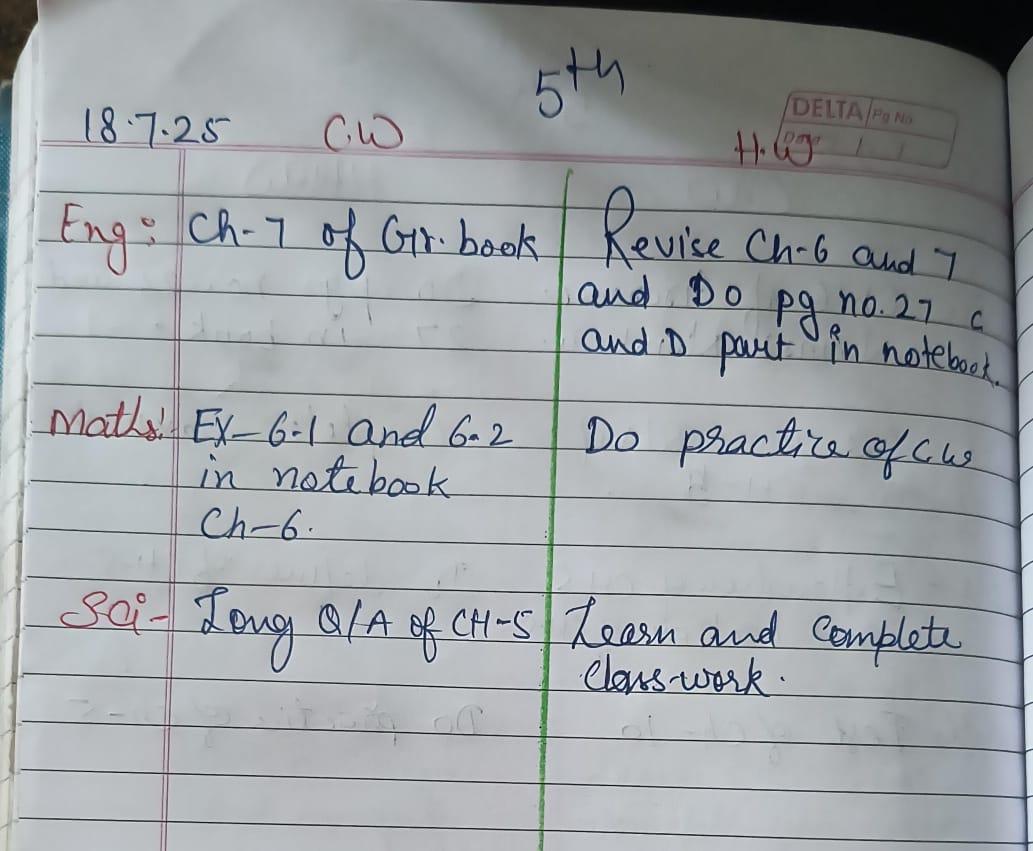 5th
DELTA Pg No
18.7.25 C.W H.W
Eng: Ch-7 of Gr. book
Revise Ch-6 and 7
and Do pg no. 27 c
and D part in notebook.
Maths: Ex-6.1 and 6.2
in notebook
Ch-6.
Do practice of cw
Sci- Long Q/A of CH-5
Learn and Complete
Class-work.